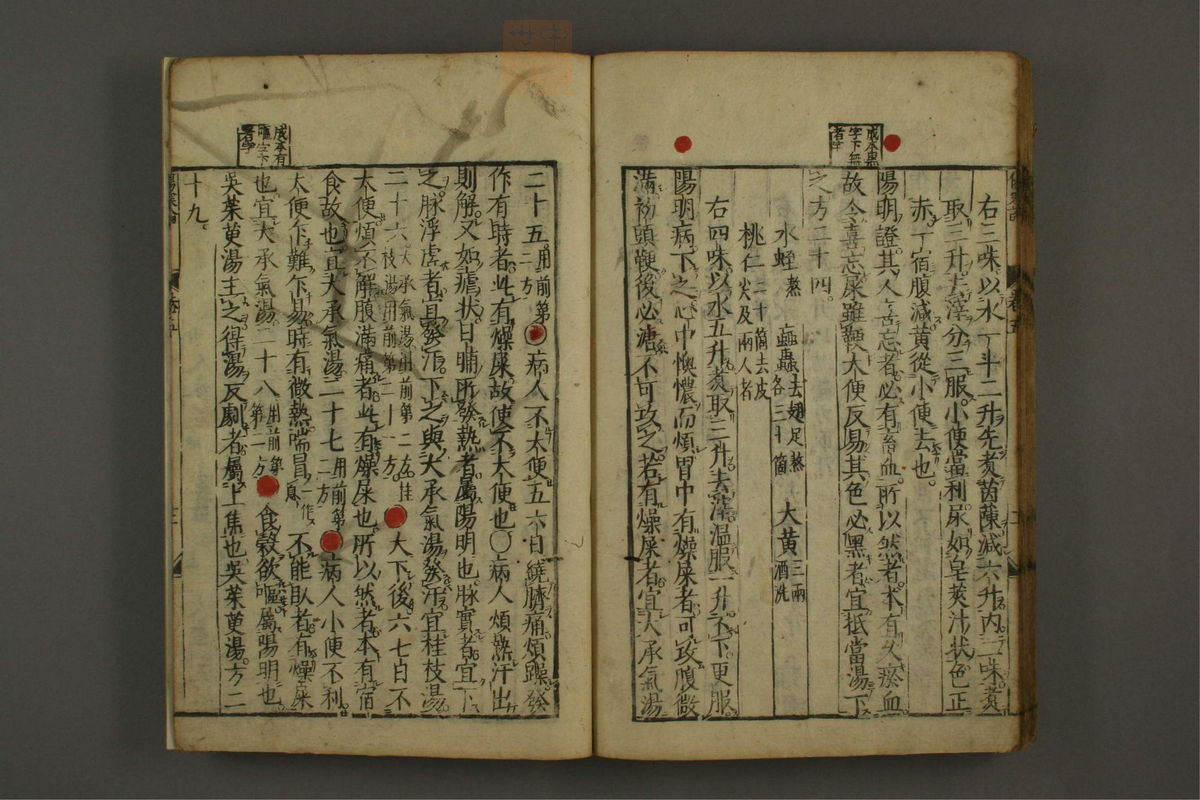 成本無
字下無
者字
右三味以水一斗二升先煮茵蔯減六升内二味煮
取三升去滓分三服小便當利尿如皂莢汁狀色正
赤一宿腹減黄從小便去也
陽明證其人喜忘者必有畜血所以然者本有久瘀血
故令喜忘屎雖鞕大便反易其色必黒者宜抵當湯下
之方二十四
水蛭熬 蝱蟲去翅足熬各三十箇 大黄三兩酒洗
桃仁二十箇去皮尖及兩人者
右四味以水五升煮取三升去滓温服一升不下更服
陽明病下之心中懊憹而煩胃中有燥屎者可攻腹微
滿初頭鞕後必溏不可攻之若有燥屎者宜大承氣湯
卷五
二十五用前第二方 病人不大便五六日繞臍痛煩躁發
作有時者此有燥屎故使不大便也○病人煩熱汗出
則解又如瘧狀日晡所發熱者屬陽明也脉實者宜下
之脉浮虚者宜發汗下之與大承氣湯發汗宜桂枝湯
二十六大承氣湯用前第二方桂枝湯用前第二十一方 大下後六七日不
大便煩不解腹滿痛者此有燥屎也所以然者本有宿
食故也宜大承氣湯二十七用前第二方 病人小便不利
大便乍難乍易時有微熱喘冒一作息不能臥者有燥屎
也宜大承氣湯二十八用前第二方 食穀欲嘔屬陽明也
呉茱萸湯主之得湯反劇者屬上焦也呉茱萸湯方二
十九
成本有
嘔字下
者字